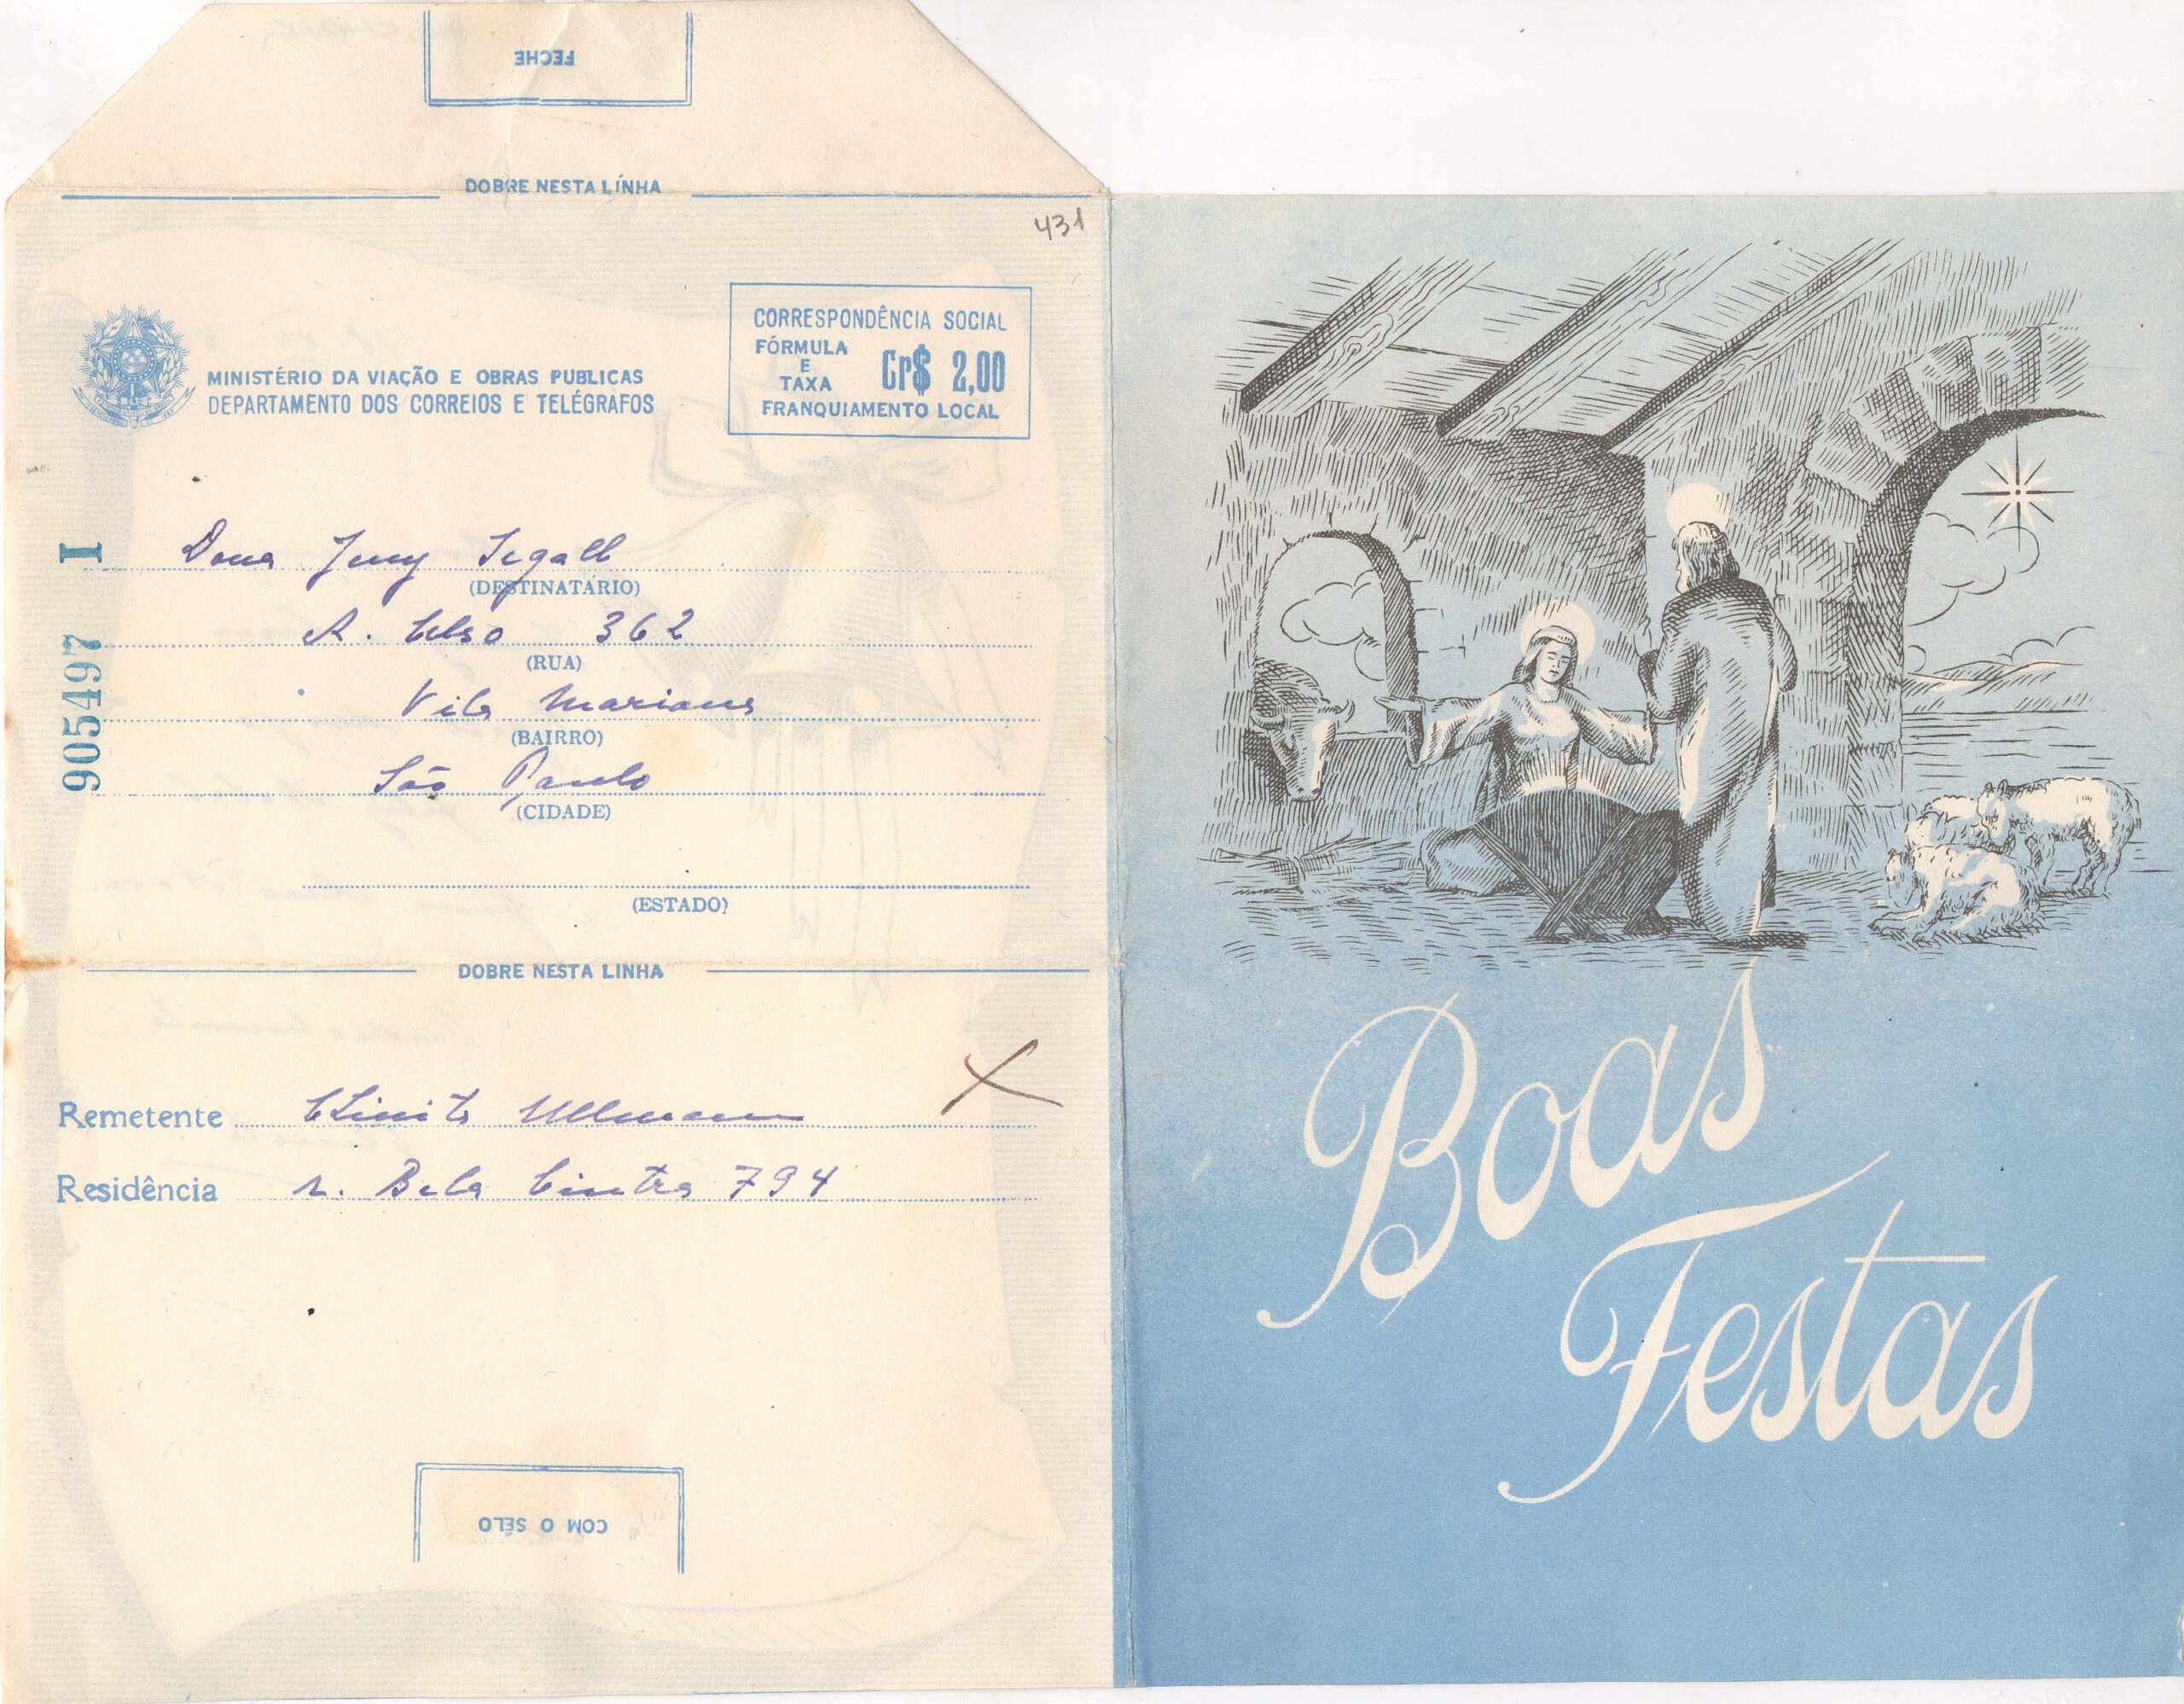 FECHE
DOBRE NESTA LÍNHA
431
CORRESPONDÊNCIA SOCIAL
FÓRMULA
E
TAXA
Cr$ 2,00
FRANQUIAMENTO LOCAL
MINISTÉRIO DA VIAÇÃO E OBRAS PUBLICAS
DEPARTAMENTO DOS CORREIOS E TELÉGRAFOS
905497 I
Dona Jenny Segall
(DESTINATÁRIO)
R. Celso 362
(RUA)
Vila Mariana
(BAIRRO)
São Paulo
(CIDADE)
(ESTADO)
DOBRE NESTA LINHA
Remetente Ullmann
Residência r. Bela Cintra 794
COM O SÊLO
Boas
Festas